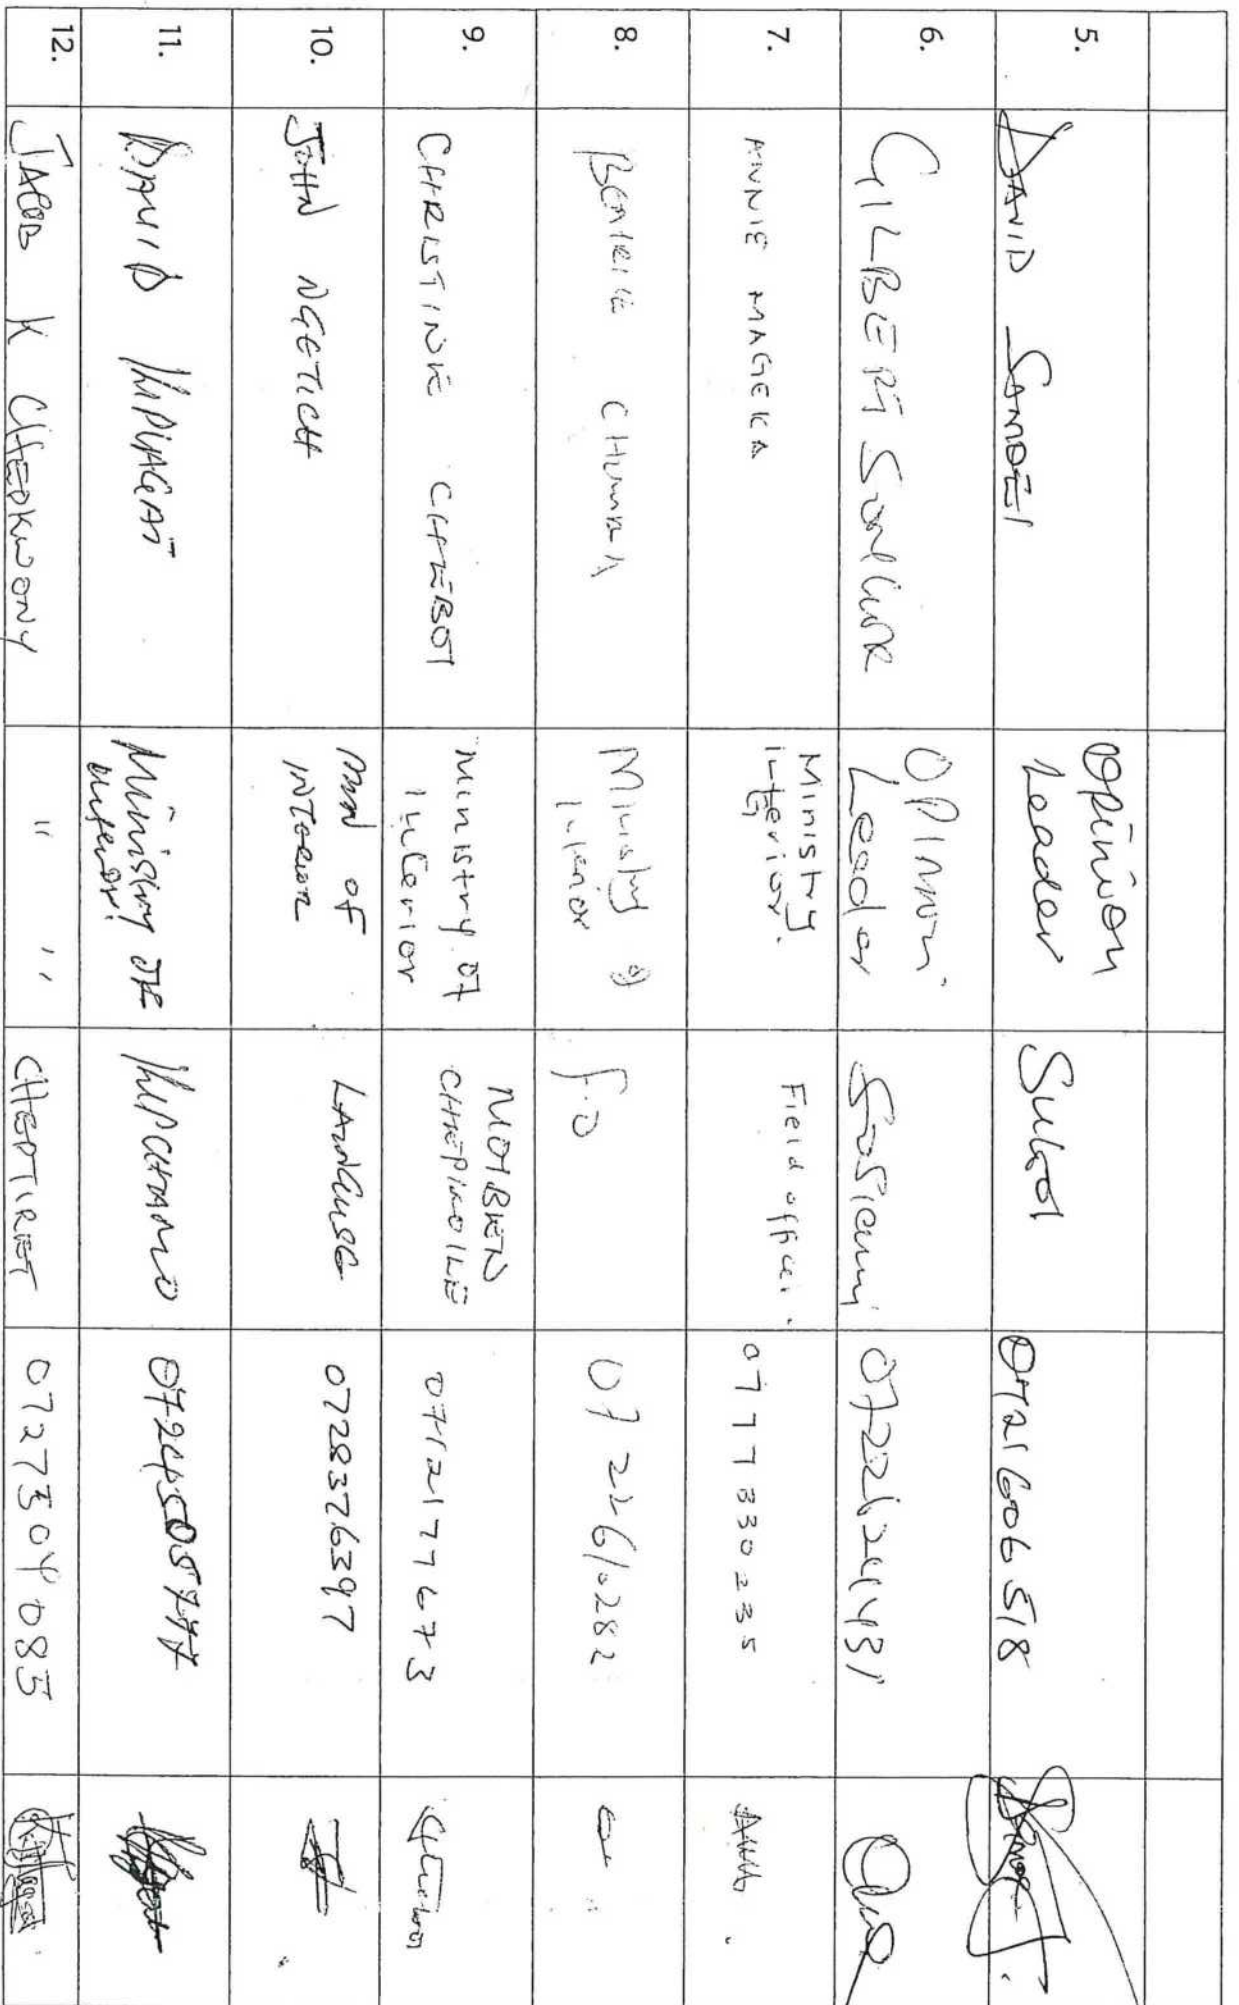 5.
DAVID SAMOEI
Opinion
Leader
Sugoi
0721606518
6.
GILBERT
OPINION
Leader
Sosiani
7.
ANNIE MAGEKA
Ministry
interior.
Field officer.
0777330235
8.
BEATRICE CHUMBA
Ministry of
Interior
F.O
0722610282
9.
CHRISTINE CHEBOT
Ministry of
Interior
MOIBEN
CHEPKOILE
0712177673
10.
JOHN NGETICH
MIN OF
INTERIOR
0728376397
11.
DAVID KIPLAGAT
Ministry OF
interior.
KIPCHAMO
12.
JACOB K CHEPKWONY
" "
CHEPTIRET
0727304085